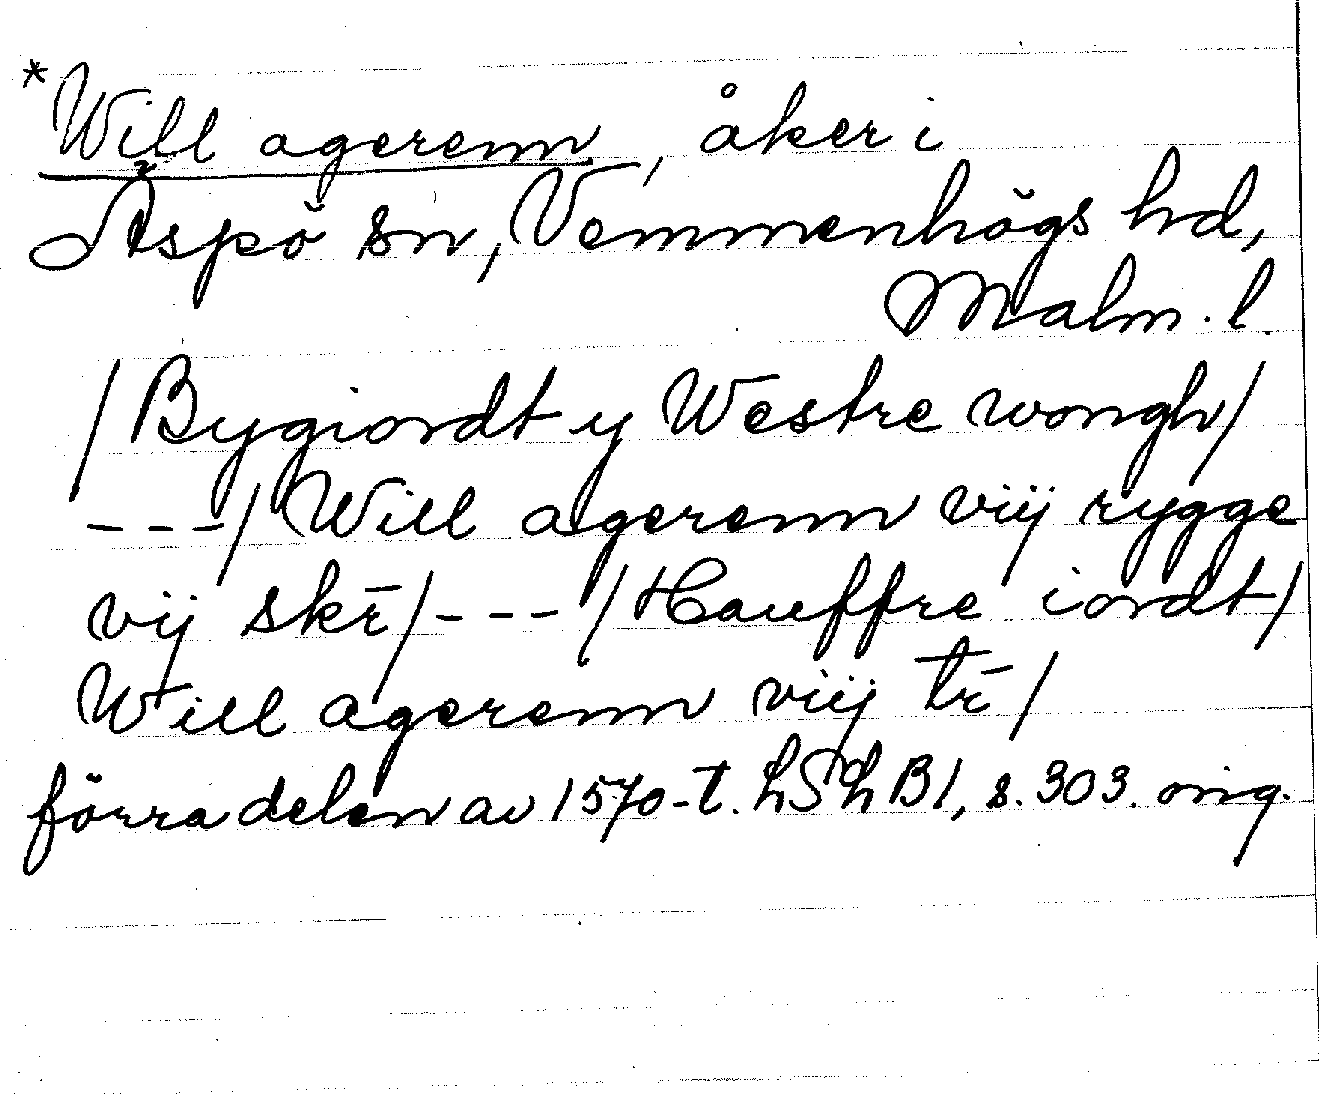 *Will agerenn, åker i
Äspö sn, Vemmenhögs hd,
Malm. l.
/Bygiordt y Westre wongh/
---/Will agerenn viij rygge
vij skr̄/---/Hauffre iordt/
Will agerenn viij tr̄/
förra delen av 1570-t. LShB1, s. 303. orig.